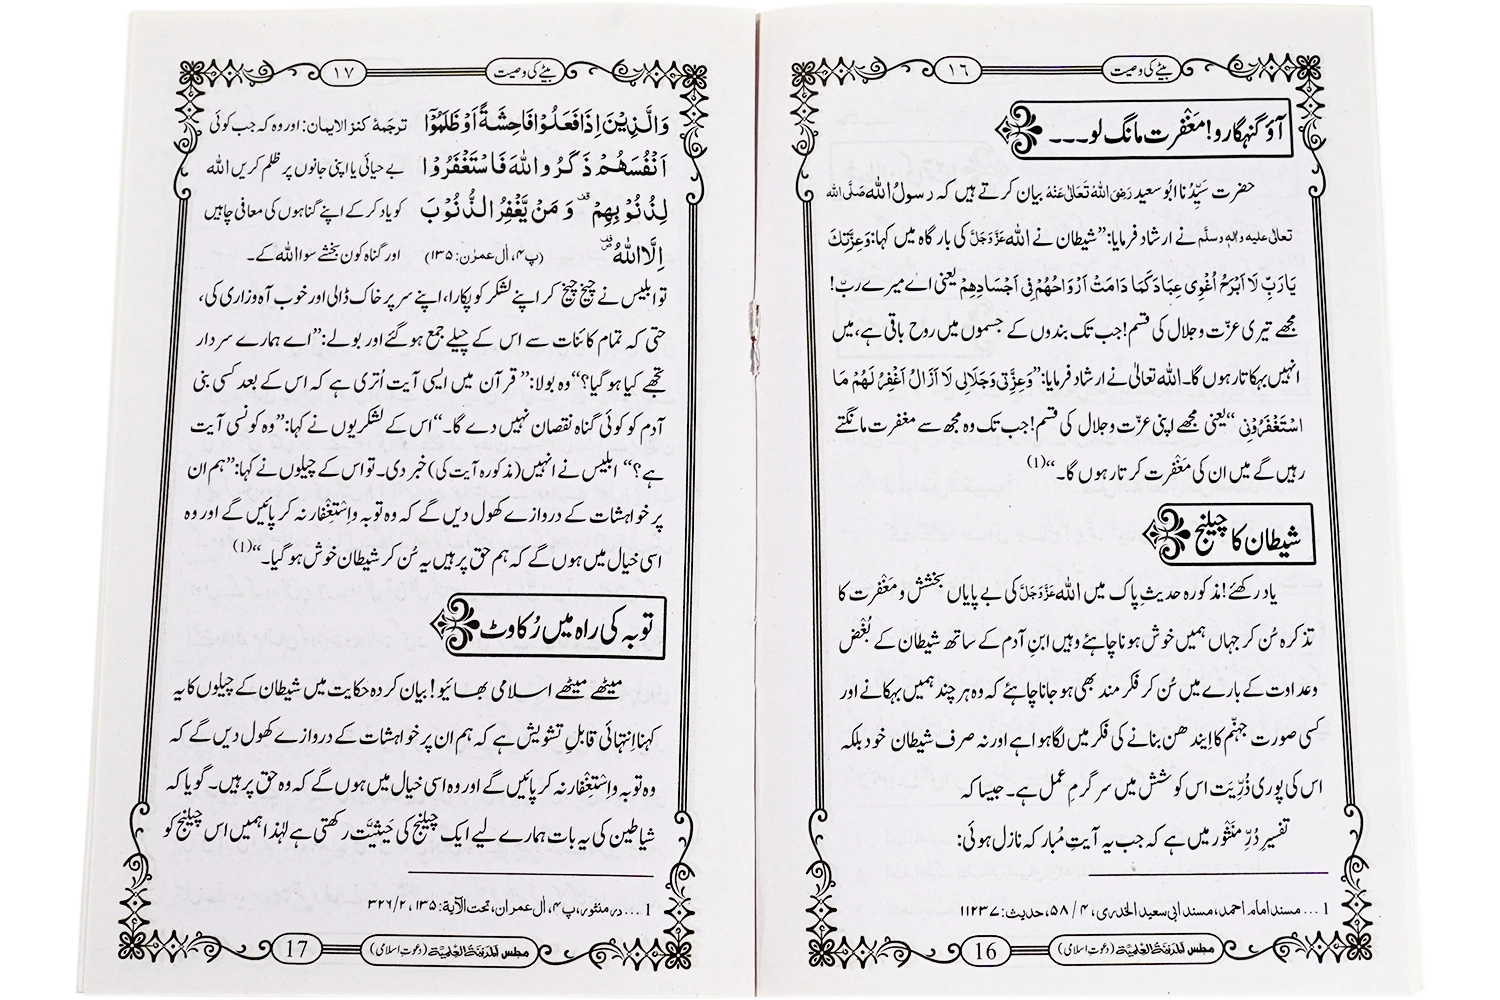 بیٹے کی وصیت
۱٦
آؤ گنہگارو! مَغْفِرت مانگ لو۔۔۔
حضرت سَیِّدُنا ابُو سعید رَضِیَ اللہُ تَعَالٰی عَنْہُ بیان کرتے ہیں کہ رسولُ اللہ صَلَّی اللہ
تعالٰی علیہ والہٖ وسلَّم نے ارشاد فرمایا: ”شیطان نے اللہ عَزَّوَجَلَّ کی بارگاہ میں کہا: وَعِزَّتِكَ
يَارَبِّ لَا اَبْرَحُ اُغْوِی عِبَادَكَ مَا دَامَتْ اَرْوَاحُهُمْ فِی اَجْسَادِهِمْ یعنی اے میرے ربّ!
مجھے تیری عزّت و جلال کی قسم! جب تک بندوں کے جسموں میں روح باقی ہے، میں
انہیں بہکاتا رہوں گا۔ اللہ تعالیٰ نے ارشاد فرمایا: ”وَعِزَّتِی وَجَلَالِی لَا اَزَالُ اَغْفِرُ لَهُمْ مَا
اسْتَغْفَرُوْنِی “ یعنی مجھے اپنی عزّت و جلال کی قسم! جب تک وہ مجھ سے مغفرت مانگتے
رہیں گے میں ان کی مَغْفرت کرتا رہوں گا۔“(1)
شیطان کا چیلنج
یاد رکھئے! مذکورہ حدیثِ پاک میں اللہ عَزَّوَجَلَّ کی بے پایاں بخشش و مَغْفرت کا
تذکرہ سُن کر جہاں ہمیں خوش ہونا چاہئے وہیں ابنِ آدم کے ساتھ شیطان کے بُغْض
و عداوت کے بارے میں سُن کر فکر مند بھی ہو جانا چاہئے کہ وہ ہر چند ہمیں بہکانے اور
کسی صورت جہنّم کا ایندھن بنانے کی فکر میں لگا ہوا ہے اور نہ صرف شیطان خود بلکہ
اس کی پوری ذُرِّیَت اس کوشش میں سرگرمِ عمل ہے۔ جیسا کہ
تفسیرِ دُرِّ منْثور میں ہے کہ جب یہ آیتِ مُبارکہ نازل ہوئی:
1 ... مسند امام احمد، مسند ابی سعید الخدری، ۴/ ۵۸، حدیث: ۱۱۲۳۷
مجلس اَلْمَدِیْنَۃُ الْعِلْمِیَّۃ (دعوتِ اسلامی)
16
بیٹے کی وصیت
۱۷
وَالَّذِیْنَ اِذَا فَعَلُوْا فَاحِشَةً اَوْ ظَلَمُوْۤا ترجمۂ کنز الایمان: اور وہ کہ جب کوئی
اَنْفُسَهُمْ ذَكَرُوا اللّٰهَ فَاسْتَغْفَرُوْا بے حیائی یا اپنی جانوں پر ظلم کریں اللہ
لِذُنُوْبِهِمْ ۪ وَ مَنْ یَّغْفِرُ الذُّنُوْبَ کو یاد کر کے اپنے گناہوں کی معافی چاہیں
اِلَّا اللّٰهُ (پ۴، اٰلِ عمرٰن: ۱۳۵) اور گناہ کون بخشے سوا اللہ کے۔
تو ابلیس نے چیخ چیخ کر اپنے لشکر کو پکارا، اپنے سر پر خاک ڈالی اور خوب آہ و زاری کی،
حتی کہ تمام کائنات سے اس کے چیلے جمع ہو گئے اور بولے: ”اے ہمارے سردار
تجھے کیا ہو گیا؟“ وہ بولا: ”قرآن میں ایسی آیت اُتری ہے کہ اس کے بعد کسی بنی
آدم کو کوئی گناہ نقصان نہیں دے گا۔“ اس کے لشکریوں نے کہا: ”وہ کونسی آیت
ہے؟“ ابلیس نے انہیں (مذکورہ آیت کی) خبر دی۔ تو اس کے چیلوں نے کہا: ”ہم ان
پر خواہشات کے دروازے کھول دیں گے کہ وہ توبہ و اِسْتِغْفار نہ کر پائیں گے اور وہ
اسی خیال میں ہوں گے کہ ہم حق پر ہیں یہ سُن کر شیطان خوش ہو گیا۔“(1)
توبہ کی راہ میں رُکاوٹ
میٹھے میٹھے اسلامی بھائیو! بیان کردہ حکایت میں شیطان کے چیلوں کا یہ
کہنا اِنتہائی قابلِ تشویش ہے کہ ہم ان پر خواہشات کے دروازے کھول دیں گے کہ
وہ توبہ و اِسْتِغْفار نہ کر پائیں گے اور وہ اسی خیال میں ہوں گے کہ وہ حق پر ہیں۔ گویا کہ
شیاطین کی یہ بات ہمارے لیے ایک چیلنج کی حَیثیَّت رکھتی ہے لہٰذا ہمیں اس چیلنج کو
1 ... در منثور، پ۴، اٰل عمران، تحت الآیۃ: ۱۳۵، ۲/ ۳۲٦
مجلس اَلْمَدِیْنَۃُ الْعِلْمِیَّۃ (دعوتِ اسلامی)
17